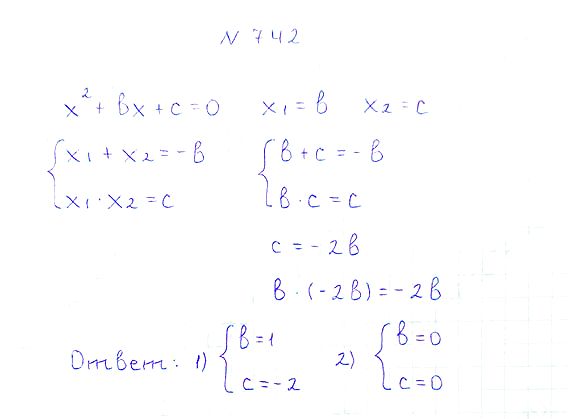 N 742
x² + bx + c = 0   x₁ = b   x₂ = c
{ x₁ + x₂ = -b   { b + c = -b
{ x₁ · x₂ = c   { b · c = c
c = -2b
b · (-2b) = -2b
Ответ: 1) { b = 1   2) { b = 0
{ c = -2   { c = 0